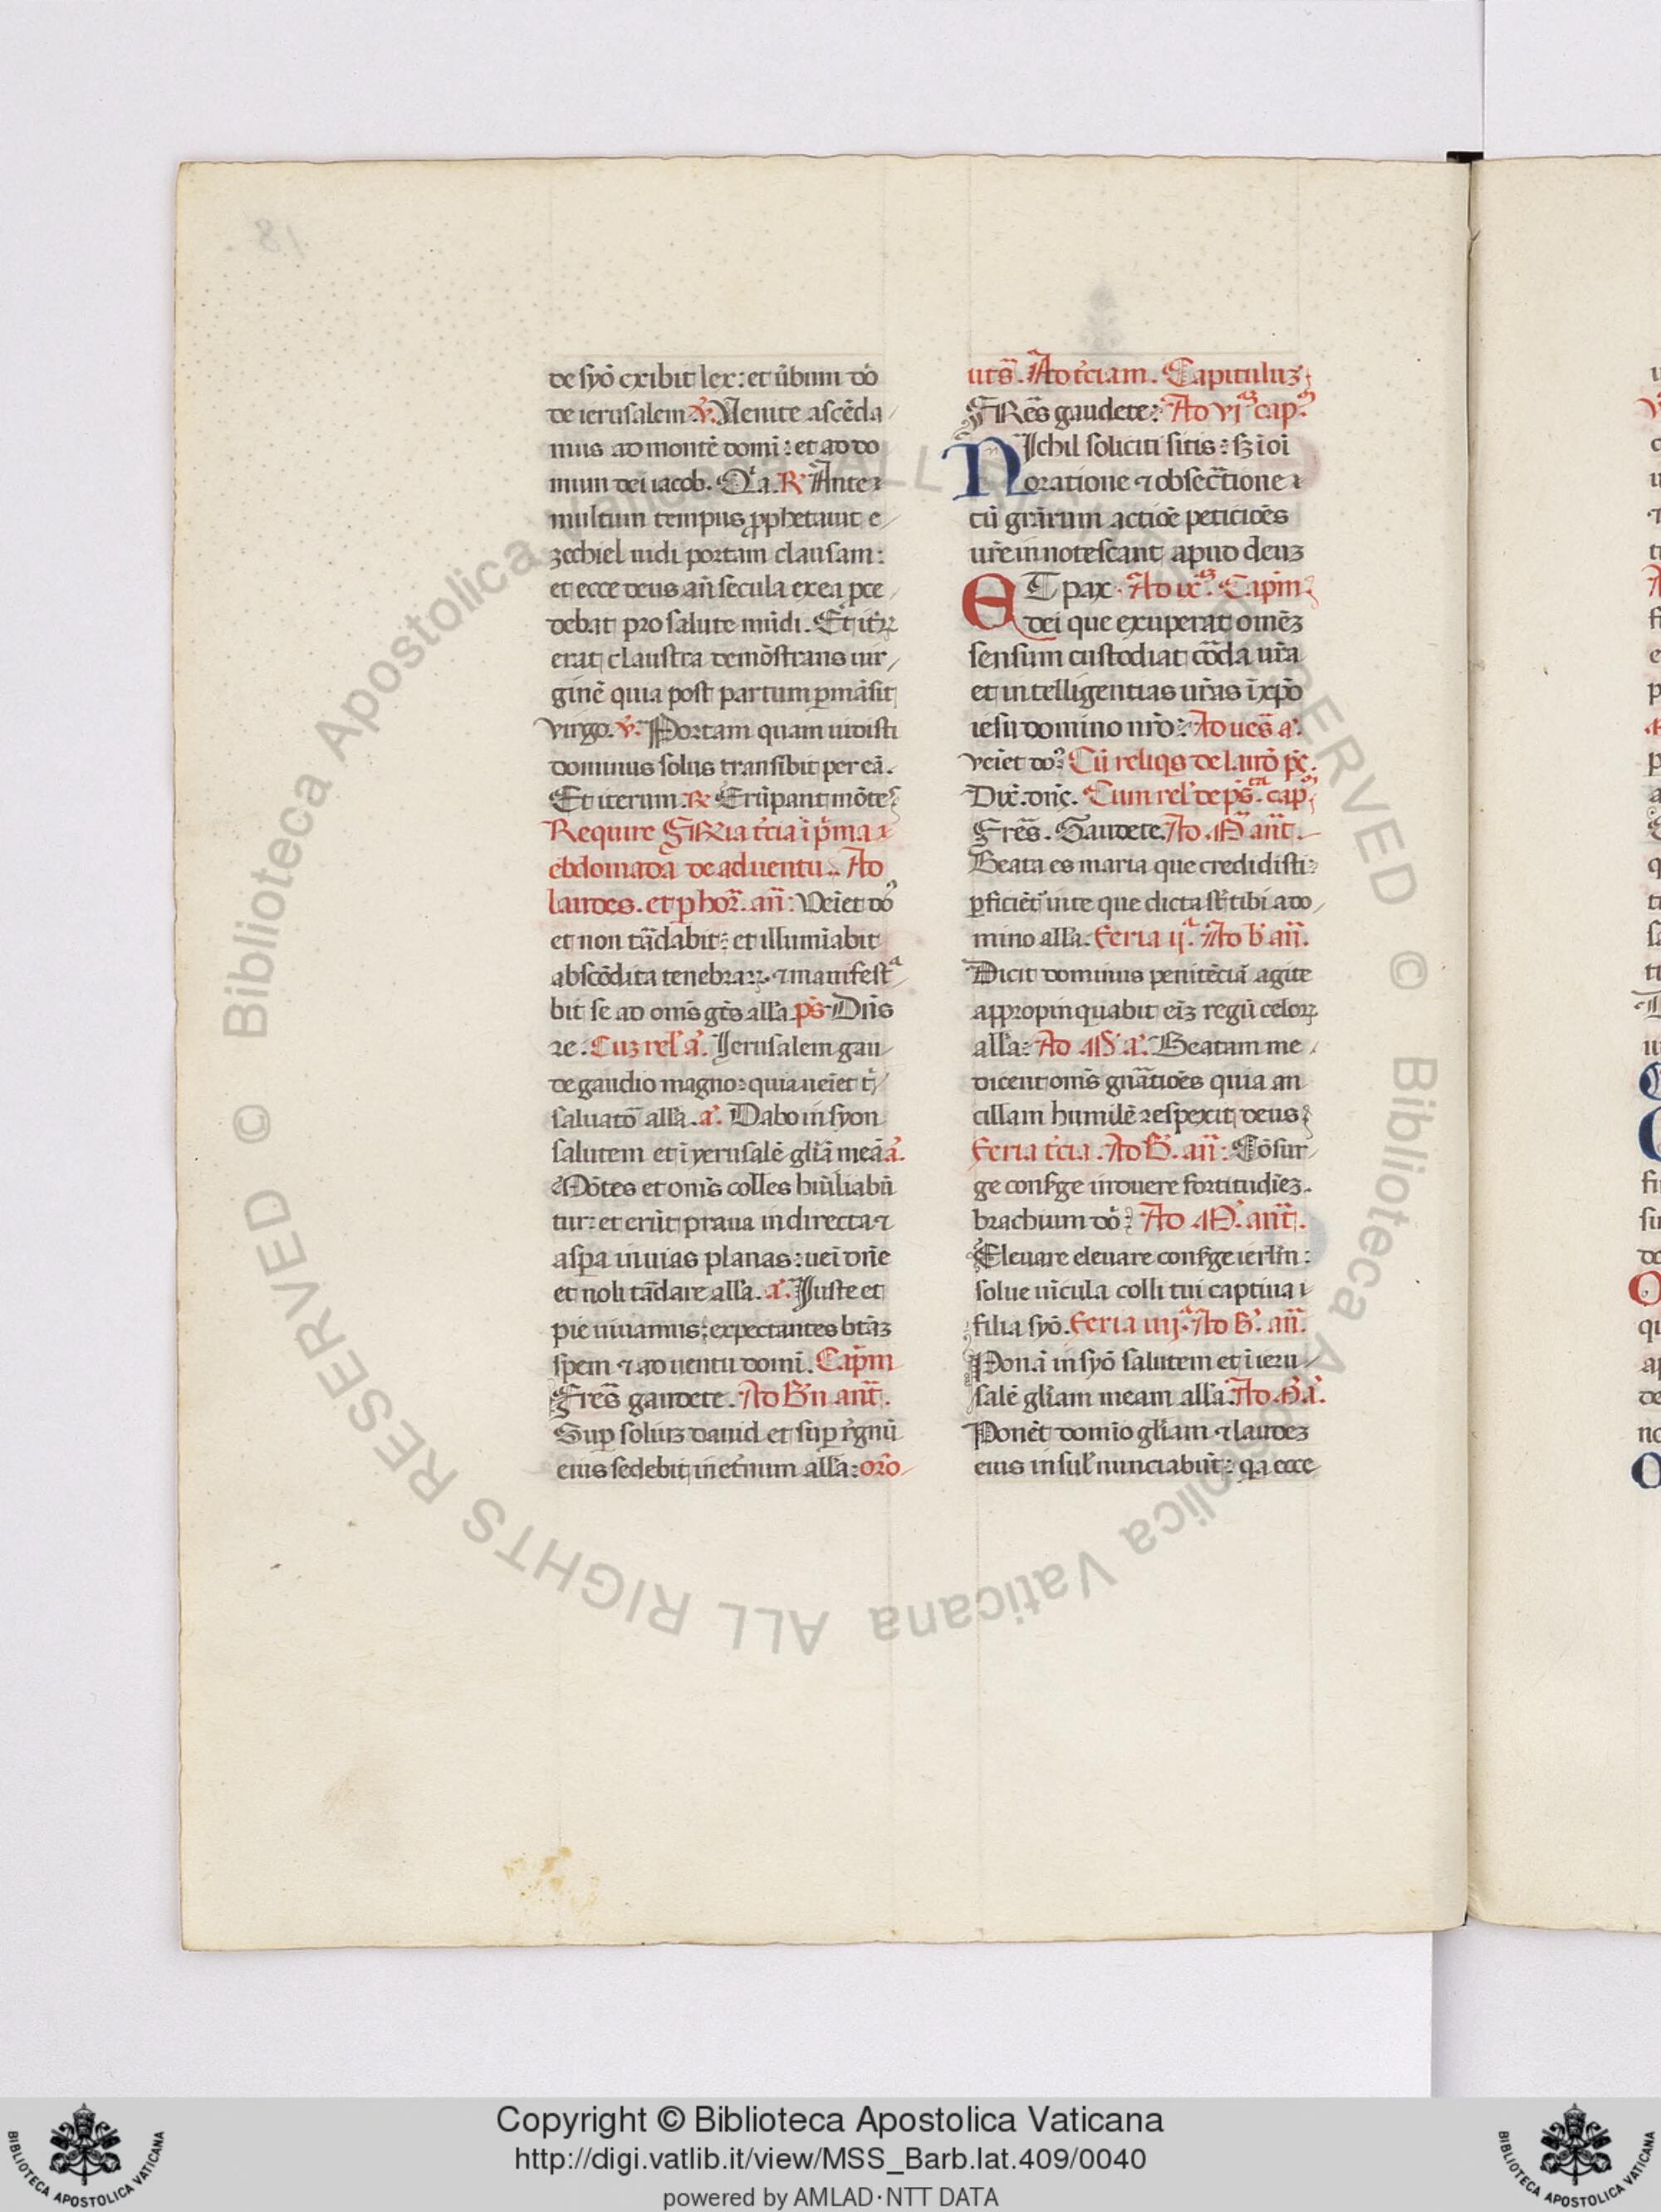 de syō exibit lex: et ūbum dō
de ierusalem. v̄. Uenite ascēda
mus ad montē domi: et ad do
mum dei iacob. Q̄a. R̄ Ante
multum tempus ꝓphetauit e
zechiel uidi portam clausam:
et ecce deus an̄ secula ex ea pce
debat pro salute mūdi. Et itꝝ
erat claustra demōstrans uir
ginē quia post partum pmāsit
virgo. v̄. Portam quam uidisti
dominus solus transibit per eā.
Et iterum. R̄ Erūpant mōtes
Require feria t̄cia ī p̄ma
ebdomada de aduentu. Ad
laudes. et p hor̄. an̄: Ueīet dō
et non tādabit: et illumiābit
abscōdita tenebraꝝ. ⁊ manifesta
bit se ad om̄s gēs all̄a. p̄s. Dn̄s
re. Cuz rel̄ ā. Ierusalem gau
de gaudio magno: quia ueīet t̄
saluatō all̄a. ā. Dabo in syon
salutem et ī yerusalē gl̄iā meā ā.
Mōtes et om̄s colles hūiliabū
tur: et erūt praua in directa ⁊
aspa in uias planas: ueī dn̄e
et noli tādare all̄a. ā. Iuste et
pie uiuamus: expectantes btāz
spem ⁊ aduentu domi. Capm̄
Fres̄ gaudete. Ad Bn̄ ant̄.
Sup soliuz dauid et sup r̄gnū
eius sedebit in et̄num all̄a: or̄o
uts̄. Ad t̄ciam. Capituluz
FRes̄ gaudete: Ad vjᵃᵐ cap.
NIchil soliciti sitis: sꝫ ī oī
oratione ⁊ obsec̄tione
cū grārum actiōe peticiōes
ur̄e innotescant apud deuz
ET pax. Ad ix̄. Capm̄
dei que exuperat omēz
sensum custodiat cōda ur̄a
et intelligentias ur̄as ī xp̄o
iesu domino nr̄o: Ad ues̄ ā.
veīet dō: Cū reliqs de laud̄ p̄c.
Dix̄. dn̄c. Cum rel̄ de p̄s. cap
Fres̄. Gaudete. Ad M̄ ant̄.
Beata es maria que credidisti:
pficiēt in te que dicta st̄ tibi ado
mino all̄a. Feria ijᵃ. Ad b̄ an̄.
Dicit dominus penitēciā agite
appropinquabit eīz regū celoꝝ
all̄a: Ad M̄ ā. Beatam me
dicent om̄s gnātiōes quia an
cillam humilē respexit deus
Feria t̄cia. Ad B̄. an̄: Cōsur
ge consge induere fortitudīez.
brachium dō: Ad M̄. ant̄.
Eleuare eleuare consge ierl̄m:
solue uīcula colli tui captiua
filia syō. Feria iiijᵃ. Ad B̄. an̄.
Ponā in syō salutem et ī ieru
salē gl̄iam meam all̄a. Ad M̄. ā.
Ponēt domīo gl̄iam ⁊ laudez
eius in sul̄ nunciabūt: qa ecce
© Biblioteca Apostolica Vaticana ALL RIGHTS RESERVED
Copyright © Biblioteca Apostolica Vaticana
http://digi.vatlib.it/view/MSS_Barb.lat.409/0040
powered by AMLAD·NTT DATA
BIBLIOTECA APOSTOLICA VATICANA
BIBLIOTECA APOSTOLICA VATICANA